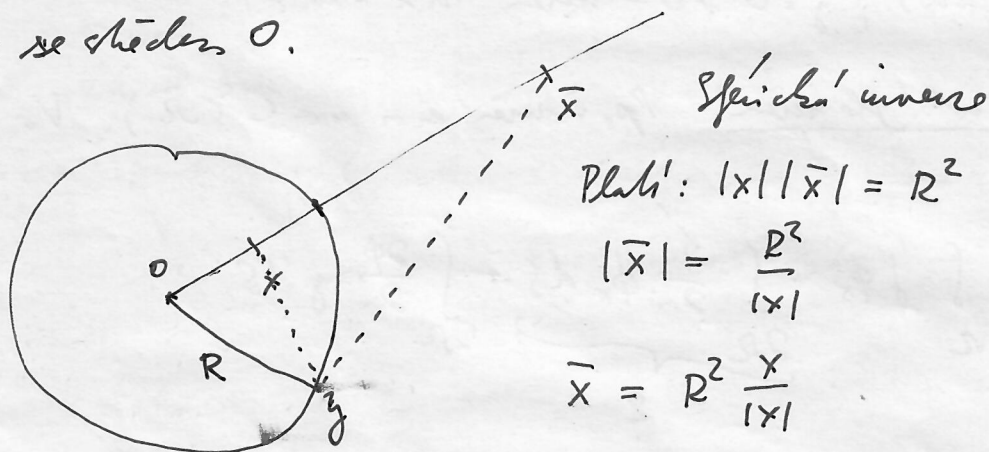 se středem 0.
x̄
Sférická inverze
Platí: |x| |x̄| = R²
|x̄| = R²/|x|
0
x
R
x̄ = R² x/|x|
y